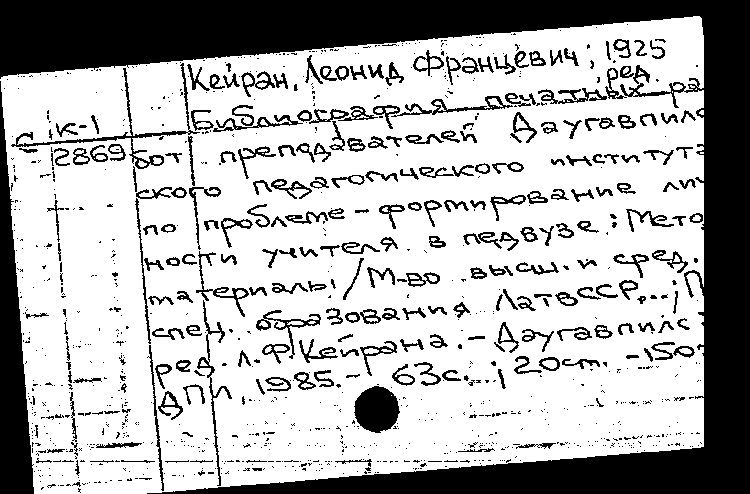 Кейран, Леонид Францевич; 1925
ред.
К-1 Библиография печатных ра
С 2869 бот преподавателей Даугавпилс
ского педагогического института
по проблеме - формирование лич
ности учителя в педвузе: Мето
материалы / М-во высш. и сред.
спец. образования ЛатвССР...; П
ред. Л.Ф. Кейрана. - Даугавпилс:
ДПИ, 1985. - 63с.; 20cm. - 150